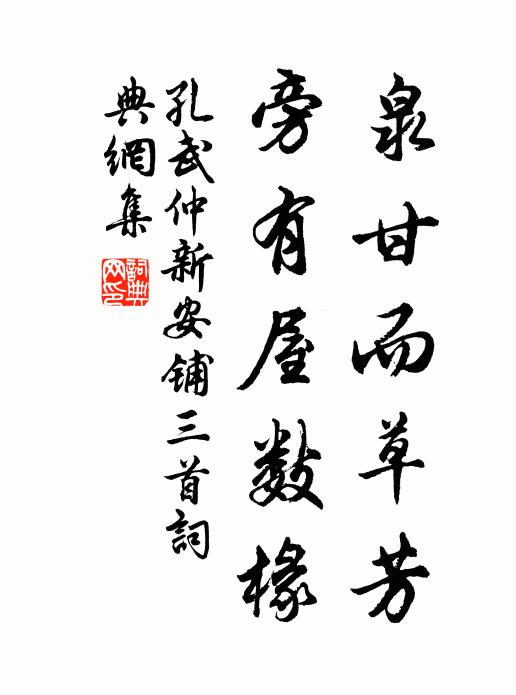 泉甘而草芳
旁有屋数椽
孔武仲新安铺三首詞
典網集
詞典网印